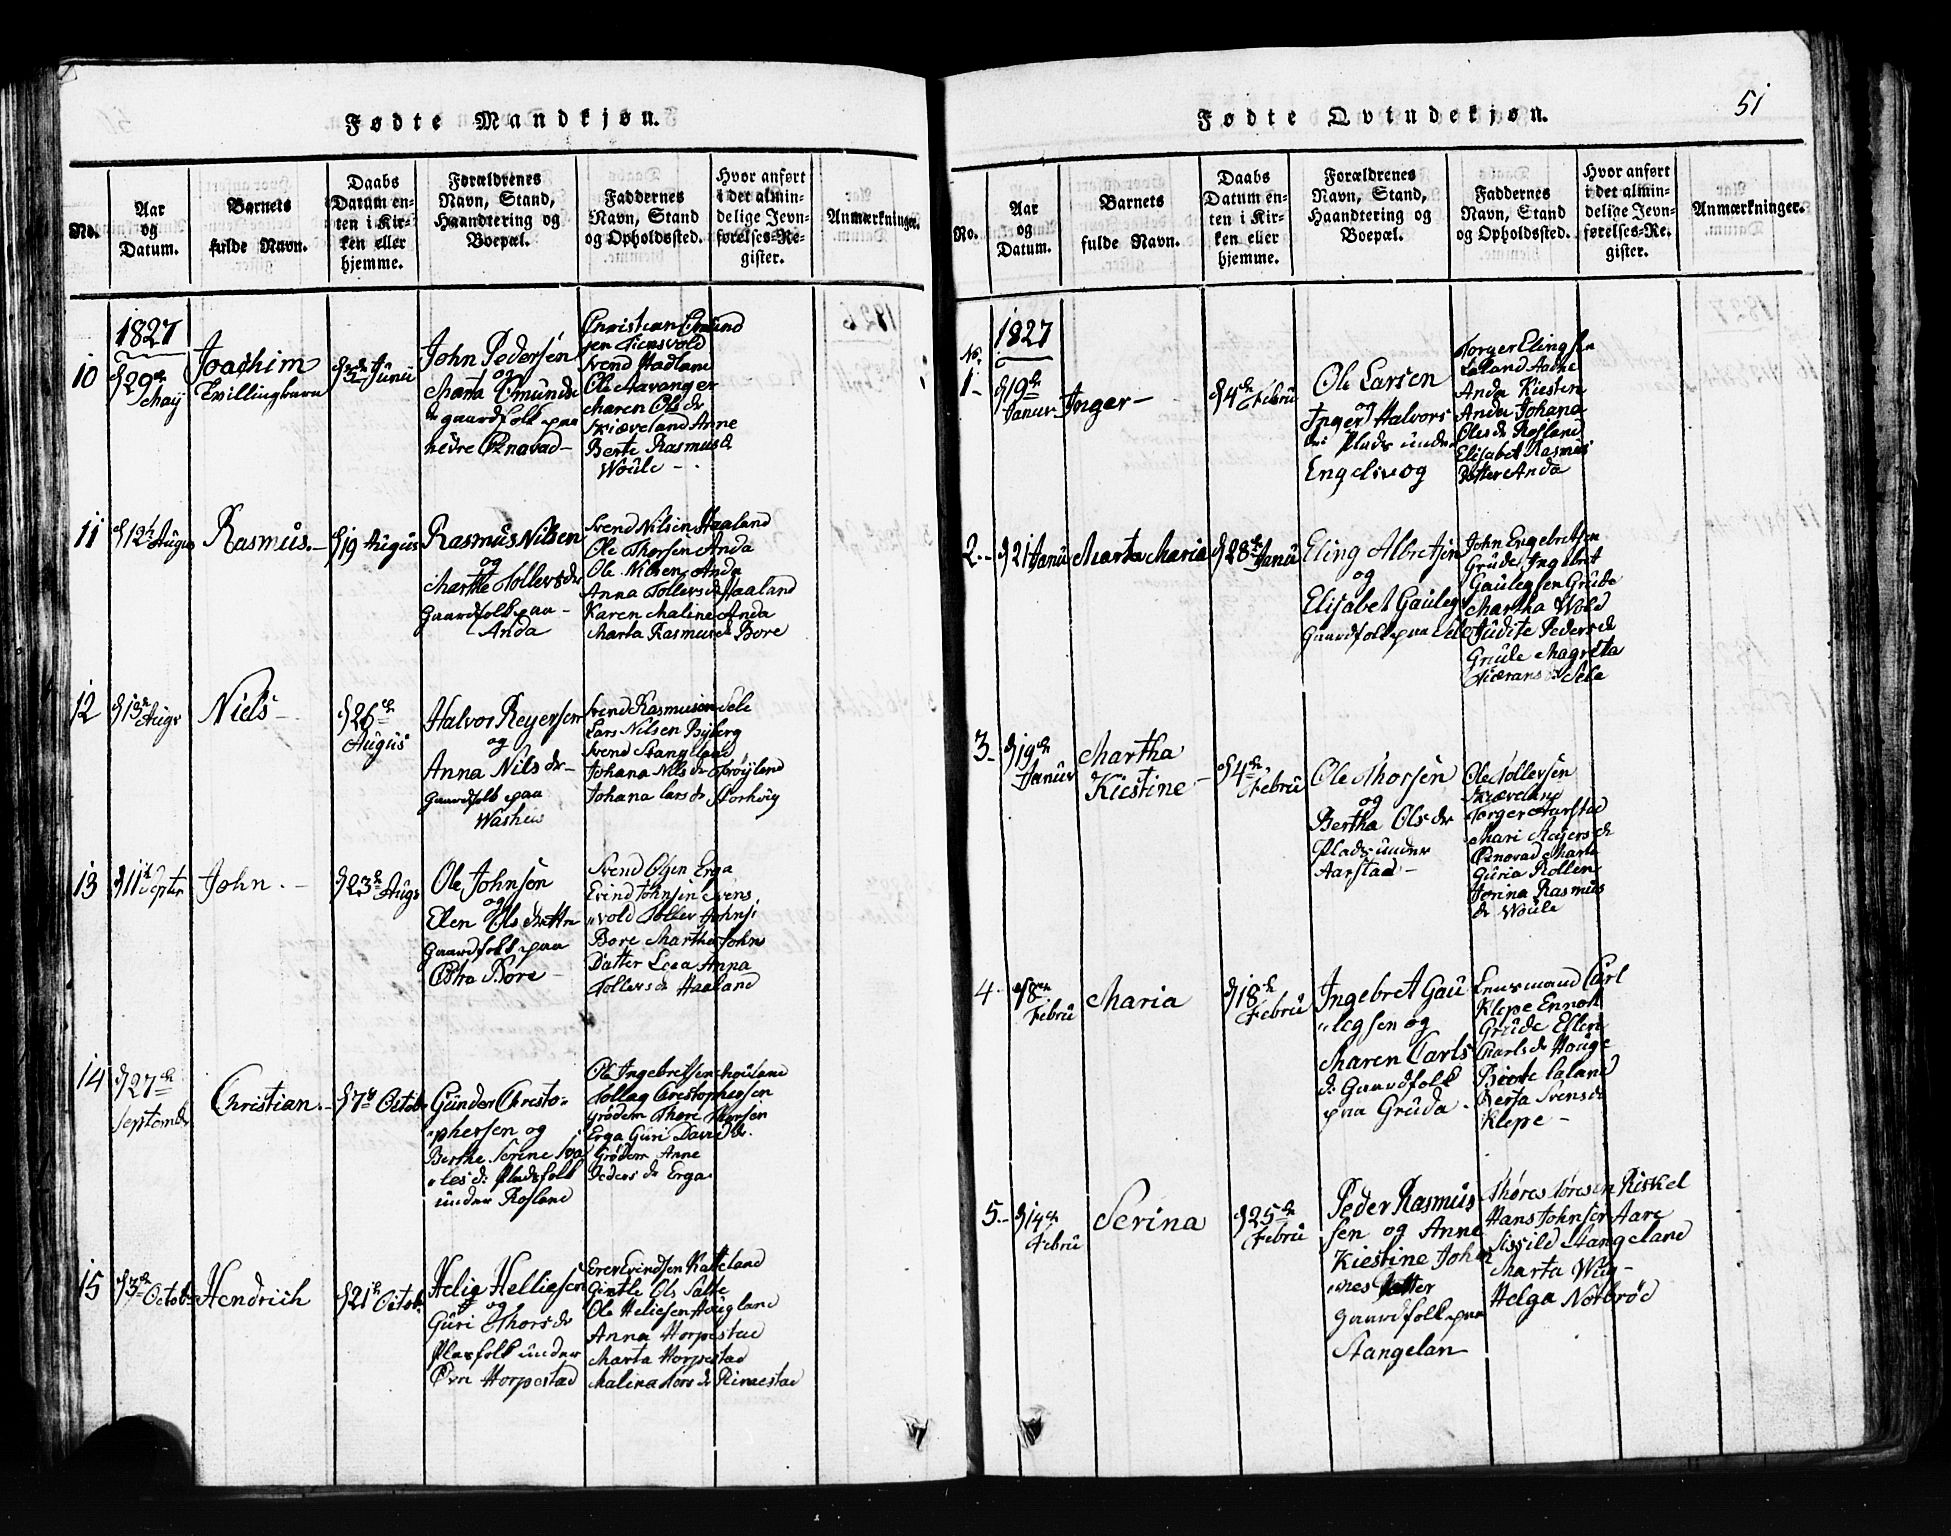 Fødte Mandkjøn.
No.
Aar
og
Datum.
Barnets
fulde Navn.
Daabs
Datum en-
ten i Kir-
ken eller
hjemme.
Forældrenes
Navn, Stand,
Haandtering og
Boepæl.
Faddernes
Navn, Stand
og Opholdssted.
Hvor anført
i det almin-
delige Jevn-
førelses-Re-
gister.
Anmærkninger.
1827
10
29
Maÿ
Joachim
Tvillingbarn
Junii
John Pedersen
og
Marta
gaardfolk paa
nedre
Christian
Svend Hadland
Ole Aavanger
Maren Ols dr
Skiæveland Anne
Berte Rasmus d
Woule
11
12 Augus
Rasmus.
19 Augus
Rasmus Nilsen
og
Marthe Tollers dr
Gaardfolk paa
Anda
Svend Nilsen Haaland
Ole Thorsen Anda
Ole Nilsen Anda
Anna Tollers d Haaland
Karen Maline Anda
Marta Rasmus d Bore
12
13 Augs
Niels
26
Augus
Halvor Reyersen
og
Anna Nils dr
Gaardfolk paa
Svend Rasmusen Sele
Lars Nilsen Byberg
Svend Stangeland
Johana Nils dr Frøÿland
Johana Lars dr Storhoig
13
11 Septr
John.
23 Augs
Ole Johnsen
og
Elen Ols datter
Gaardfolk paa
Østra Bore
Svend Olsen Erga
Evind Johnsen Svens
vold Toller Johns:
Bore Martha Johns
Datter Lea Anna
Tollers d Haaland
14
27
Septembr
Christian.
7 Octobr
Gunder Christo-
phersen og
Berthe Serine
les d: Pladsfolk
under Rosland
Ole Ingebretsen
Tollag Christophersen
Grødem Thore Thorsen
Erga Guri David dr.
Grødem Anne
Peders dr Erga
15
3 Octob
Hendrich
21 Octob
Helie Helliesen
og
Guri Thors dr
Plasfolk under
Horpestad
Giertle Ols Salte
Ole Heliesen Hougland
Anna Horpestad
Marta Horpestad
Malena Tors dr Rimestad
51
Fødte Qvindekjøn.
No.
Aar
og
Datum.
Barnets
fulde Navn.
Daabs
Datum en-
ten i Kir-
ken eller
hjemme.
Forældrenes
Navn, Stand,
Haandtering og
Boepæl.
Faddernes
Navn, Stand
og Opholdssted.
Hvor anført
i det almin-
delige Jevn-
førelses-Re-
gister.
Anmærkninger.
1827
No.
1
19
Januar
Inger
4 Febru
Ole Larsen
og
Inger Halvors
dr: Plads under
Engelsvog
Torger Elingsen
Laland
Anda Kiesten
Anda Johana
Ols dr Rosland
Elisabet Rasmus
datter Anda
2.
21 Janu
Marta Maria
28 Janu
Eling Albretsen
og
Elisabet Gaulegs
Gaardfolk paa Sele
John Engebretsen
Grude Ingebret
Gaulegsen Grude
Martha Wold
Judite Peders d
Grude Magreta
Sele
3
19
Januar
Martha
Kiestine
4
Febru
Ole Thorsen
og
Bertha Ols dr
Plads under
Aarstad
Ole Tollersen
Skiæveland
Torger Aarstad
Mari
Marta
Guria Rollen
Jorina Rasmus
dr Woule
4
8
Febru
Maria
18
Febru
Ingebret Gau
legsen og
Maren Carls
d: Gaardfolk
paa Gruda
Lensmand Carl
Klepe
Grude
Carls dr Houge
Laland
Svens d
Klepe
5.
14
Febru
Serina
25
Febru
Peder Rasmus
sen og Anne
Kiestine John
nes datter
Gaardfolk paa
Stangelan
Thores Toresen Riskel
Hans Johnsen Aare
Sissild Stangeland
Marta
Helga Norbrød